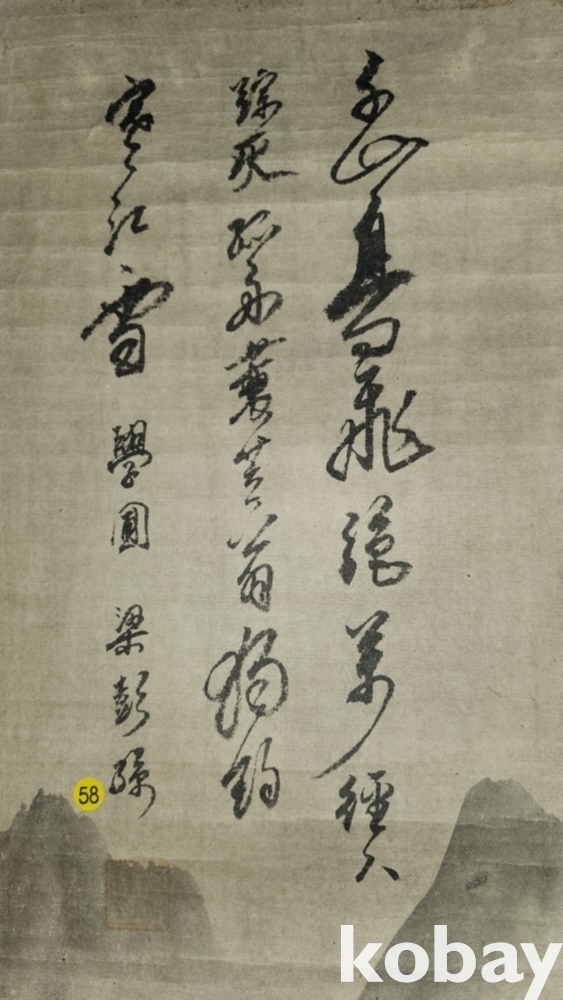 千山鳥飛絶萬徑人
踪滅孤舟蓑笠翁獨釣
寒江雪 學圃 梁彭孫
58
kobay